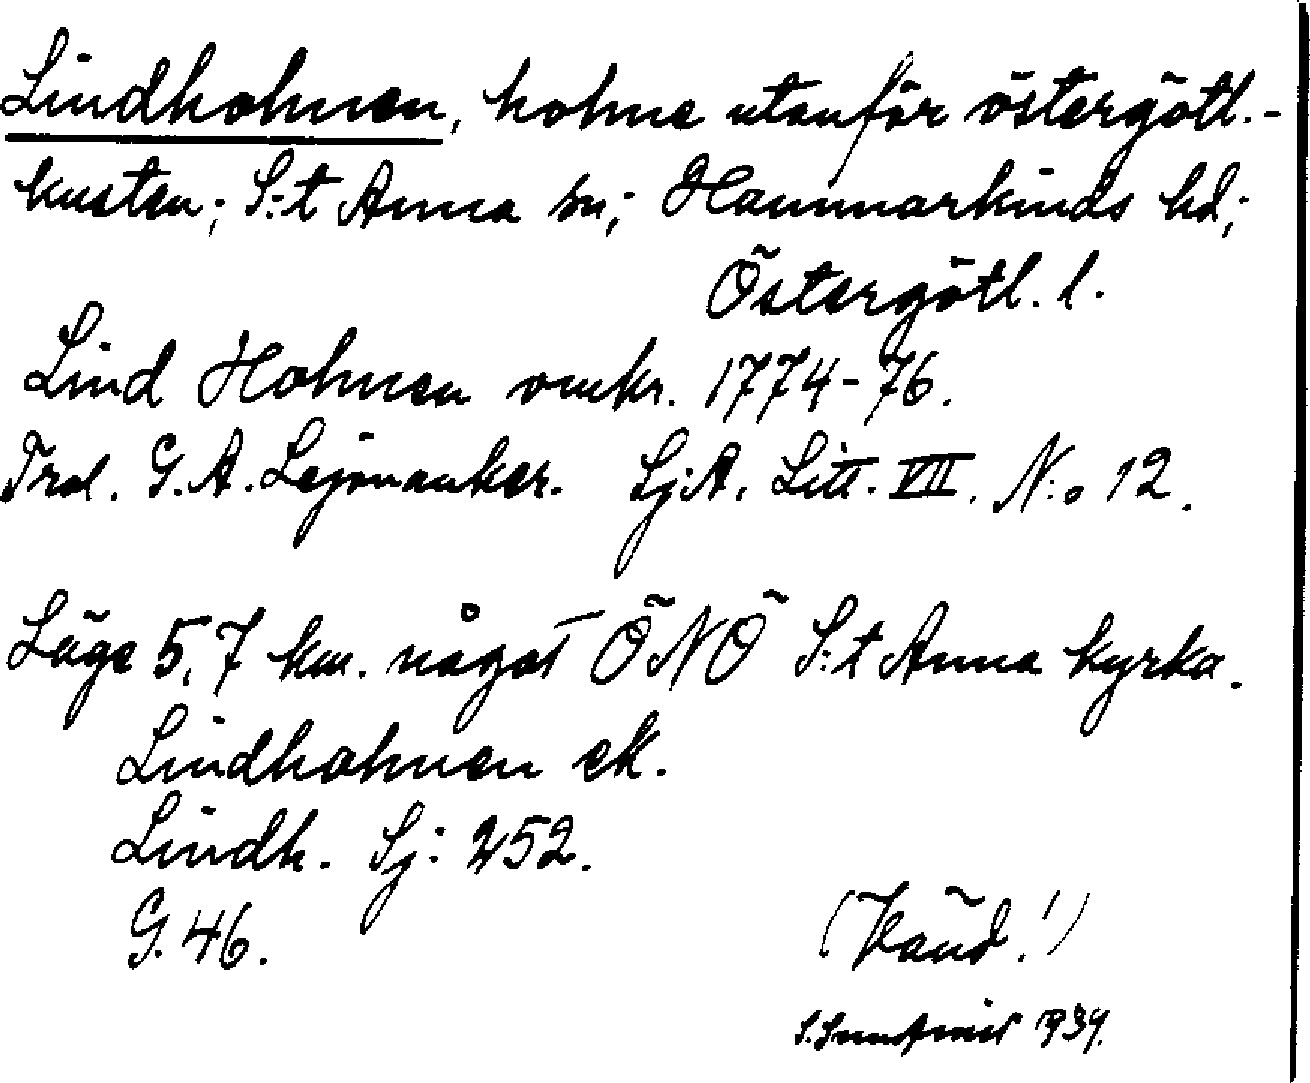 Lindholmen, holme utanför östergötl.-
kusten; S:t Anna sn; Hammarkinds hd;
Östergötl. l.
Lind Holmen omkr. 1774-76.
Trol. G. A. Lejonanker. Sj.A. Litt. VII. N:o 12.
Läge 5,7 km. något ÖNÖ S:t Anna kyrka.
Lindholmen ek.
Lindh. Sj: 252.
G. 46.
(Vänd!)
1939.